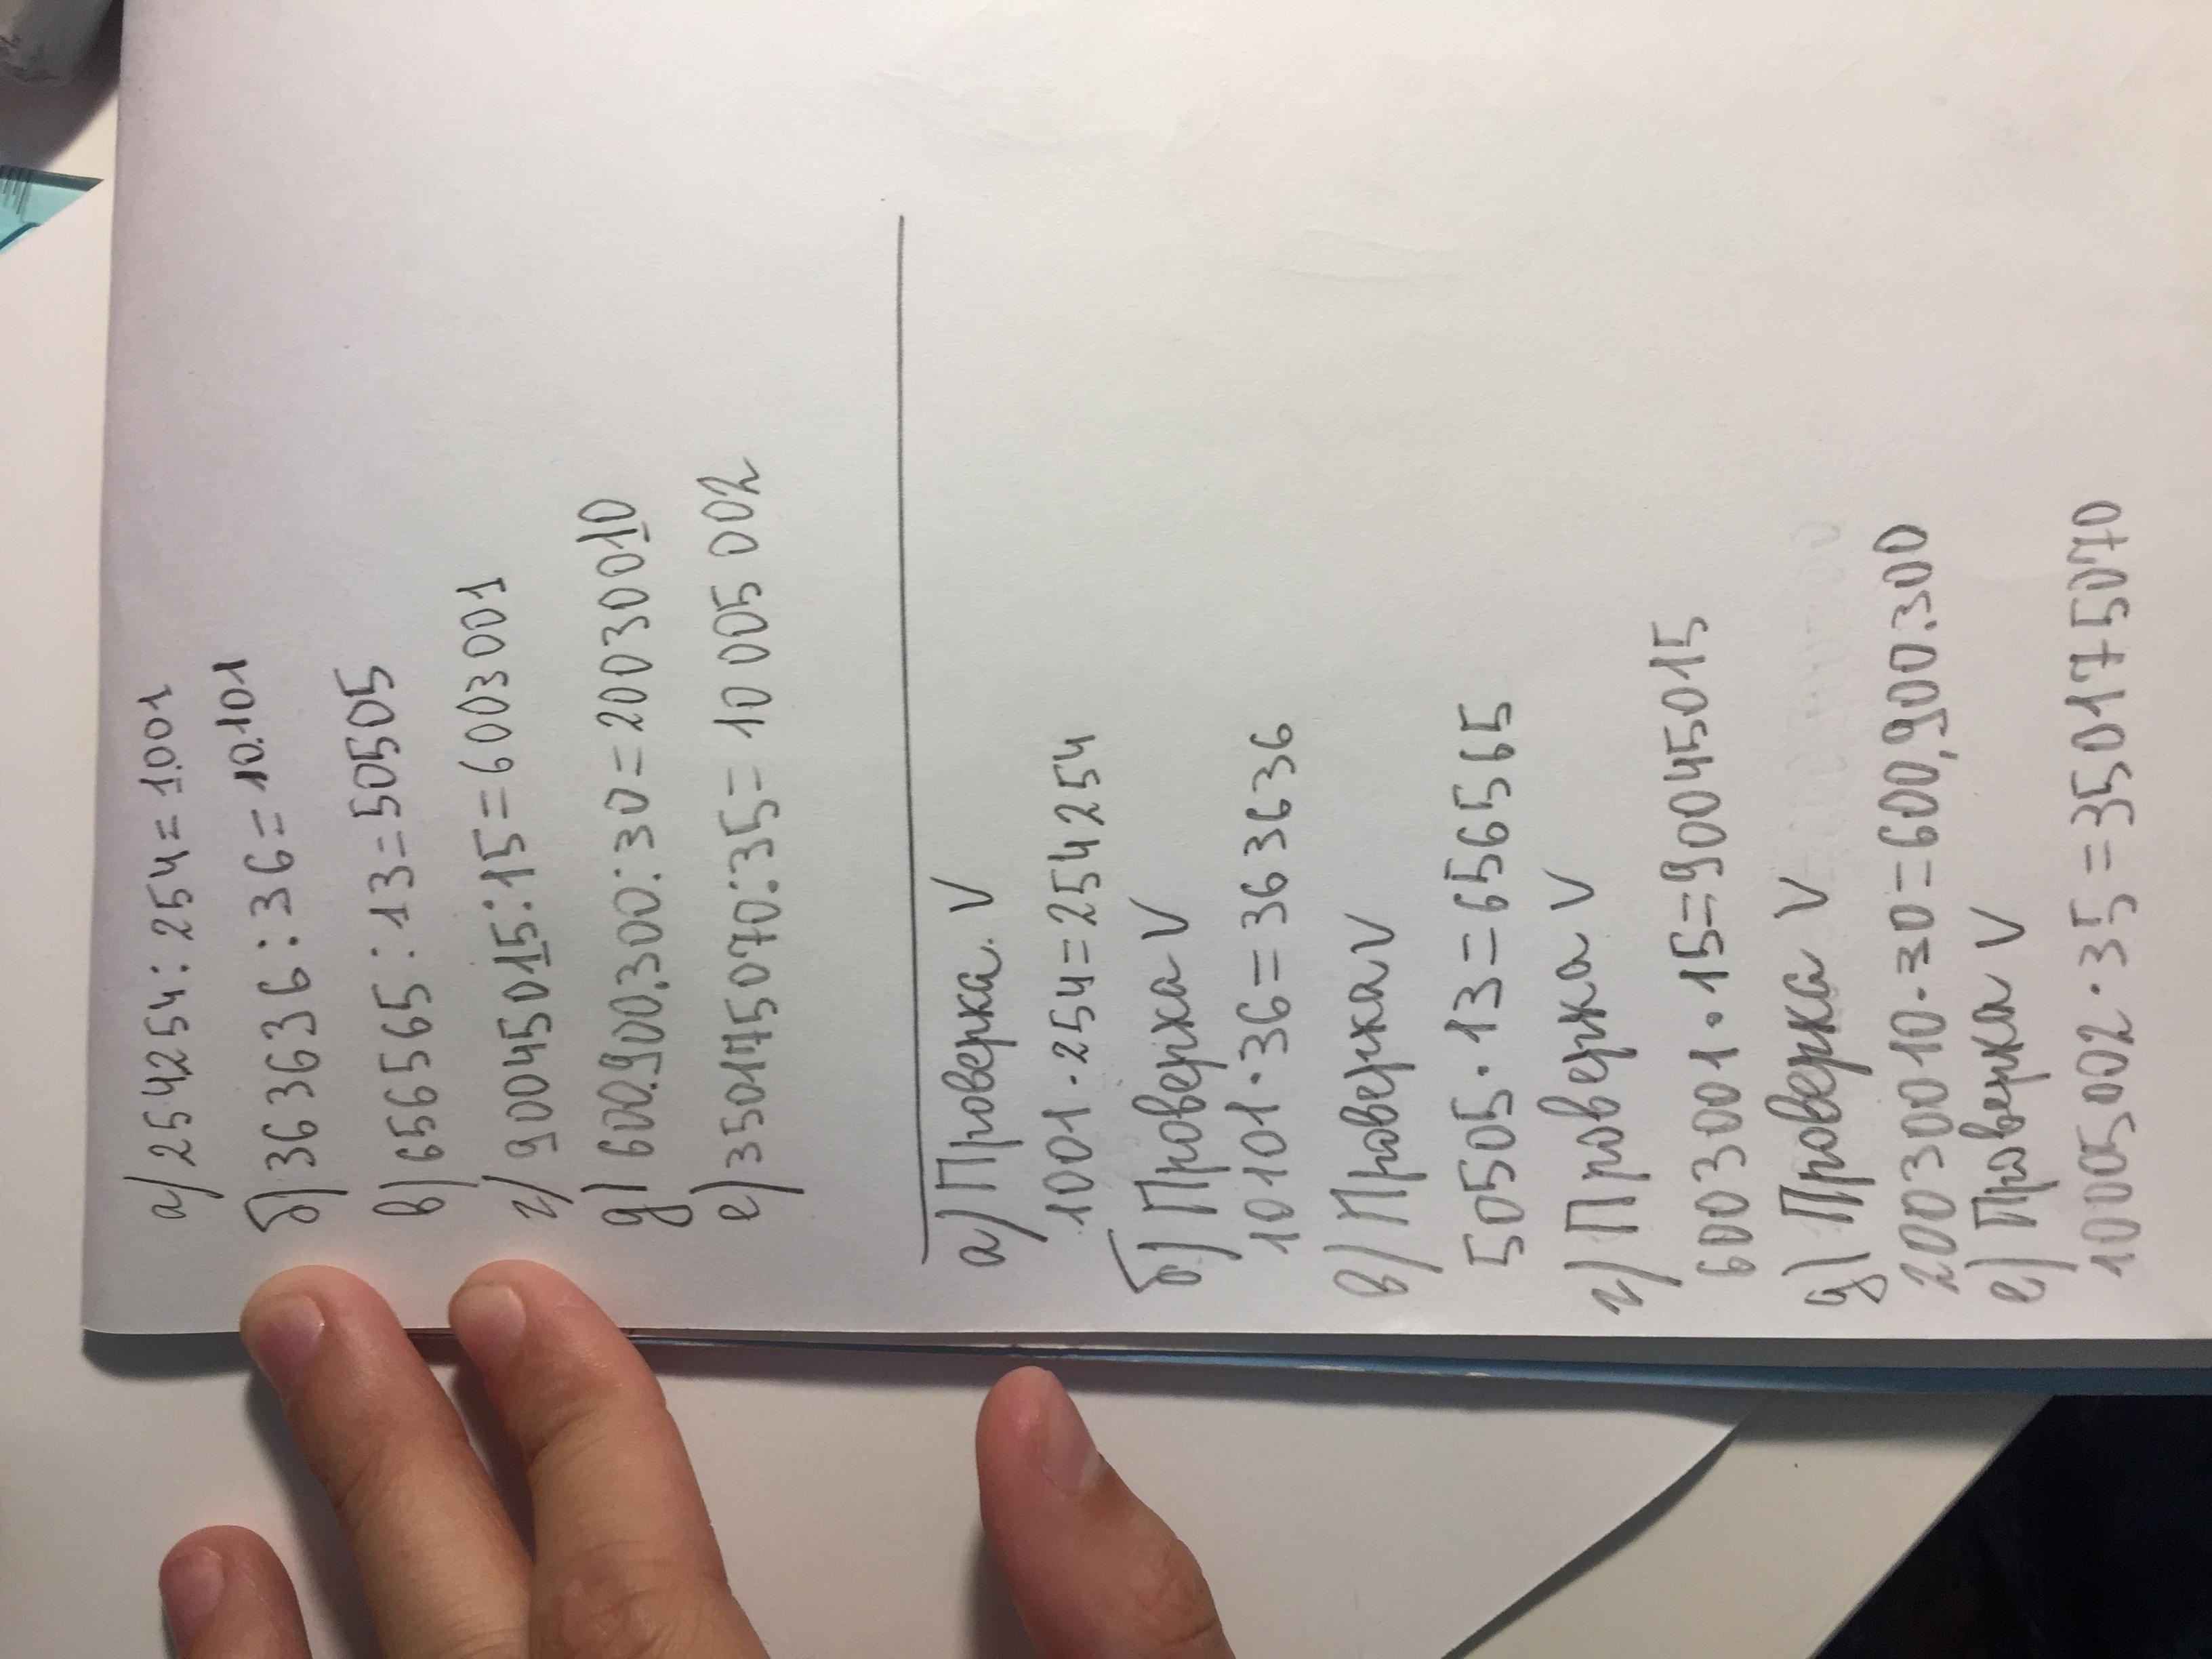 а) 254254:254=1.001
б) 363636:36=10.101
в) 656565:13=50505
г) 90045015:15=6003001
д) 600.900.300:30=20030010
е) 350175070:35=10 005 002
а) Проверка. V
1001·254=254254
б) Проверка V
10101·36=363636
в) Проверка V
50505·13=656565
г) Проверка V
6003001·15=90045015
д) Проверка V
20030010·30=600,900.300
е) Проверка V
10005002·35=350175070